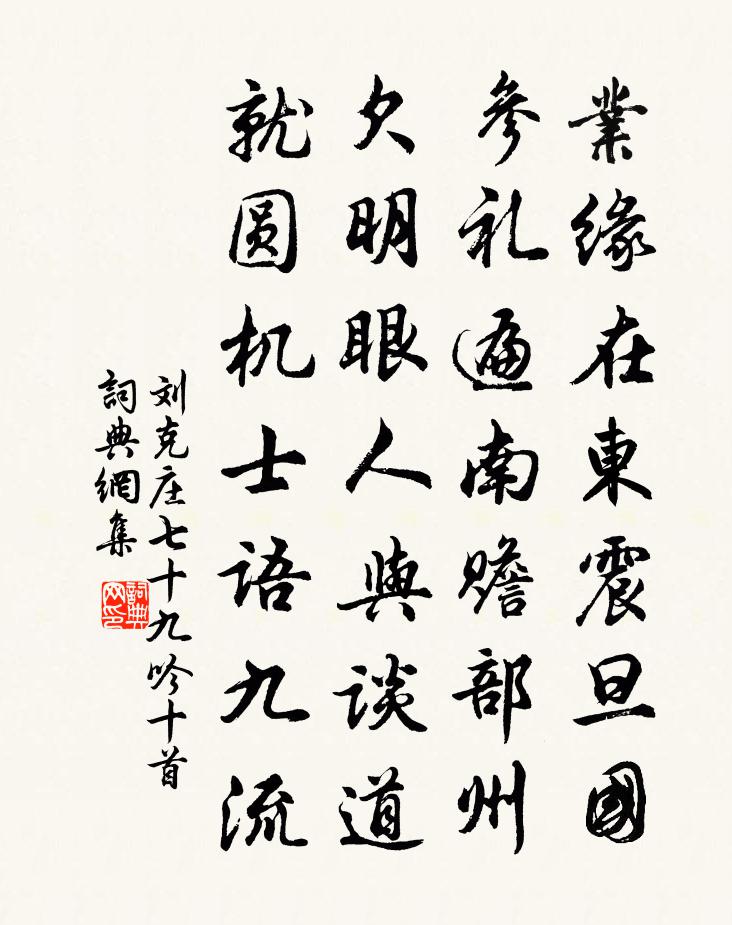 業緣在東震旦國
參礼遍南贍部州
欠明眼人與談道
就圆机士語九流
刘克庄七十九吟十首
詞典網集
詞典网印